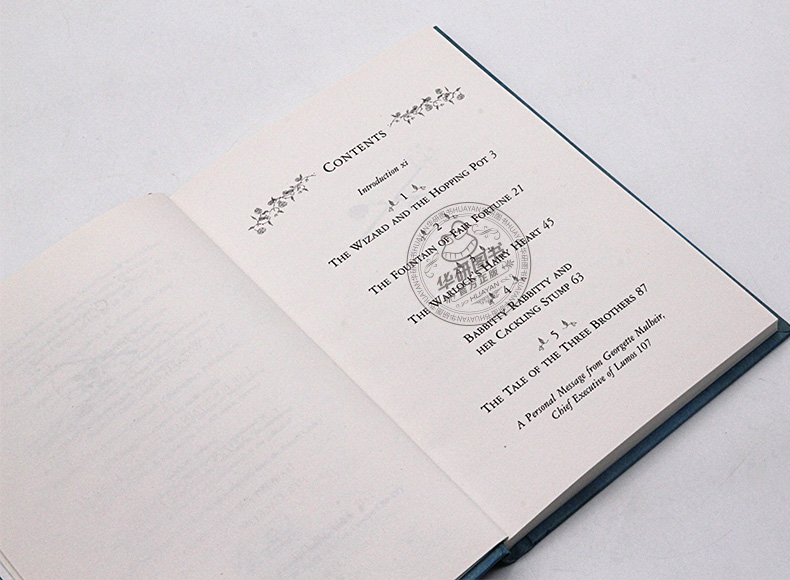 CONTENTS
Introduction xi
1
THE WIZARD AND THE HOPPING POT 3
2
THE FOUNTAIN OF FAIR FORTUNE 21
THE WARLOCK'S HAIRY HEART 45
4
BABBITTY RABBITTY AND
HER CACKLING STUMP 63
5
THE TALE OF THE THREE BROTHERS 87
A Personal Message from Georgette Mulheir,
Chief Executive of Lumos 107
华研图书
官方正版
HUAYAN